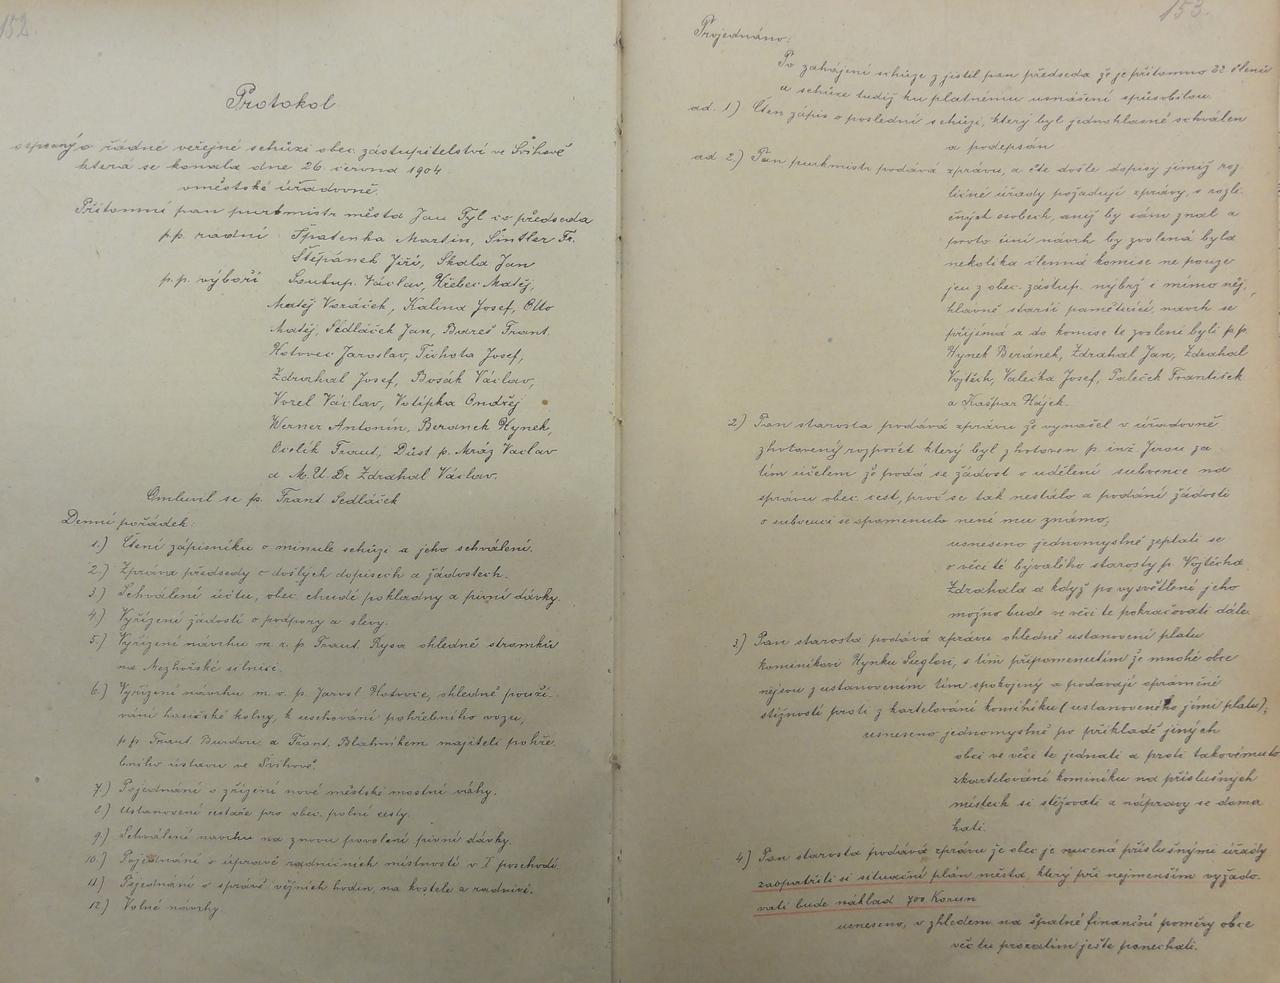 152.
Protokol
sepsaný o řádné veřejné schůze obec. zástupitelství ve Švihově
která se konala dne 26. června 1904
v městské úřadovně.
Přítomni pan purkmistr města Jan Tyl co předseda
p.p. radní Špatenka Martin, Šintler Fr.
Štěpánek Jiří, Skala Jan
p.p. výboři Soukup Václav, Hřebec Matěj,
Matěj Voráček, Kalina Josef, Otto
Matěj, Sedláček Jan, Bareš Frant.
Hotovec Jaroslav, Tichota Josef,
Zdrahal Josef, Bosák Václav,
Vorel Václav, Votípka Ondřej
Werner Antonín, Beranek Hynek,
Ocelík Frant, Důst. p. Mráz Vaclav
a M.U.Dr Zdrahal Václav.
Omluvil se p. Frant Sedláček
Denní pořádek:
1.) Čtení zápisníku o minulé schůzi a jeho schválení.
2.) Zpráva předsedy o došlých dopisech a žádostech.
3.) Schválení účtu, obec. chudé pokladny a pivní dávky.
4.) Vyřízení žádostí o podpory a slevy.
5.) Vyřízení návrhu m. r. p. Frant. Rysa ohledně stromků
na Mezhořské silnici.
6.) Vyřízení návrhu m. v. p. Jarosl Hotovce, ohledně použí-
vání hasičské kolny, k uschování pohřebního vozu,
p.p. Frant. Burdou a Frant. Blahníkem majiteli pohře-
bního ústavu ve Švihově.
7.) Pojednání o zřízení nové městské mostní váhy.
8.) Ustanovení cestáře pro obec. polní cesty.
9.) Schválení navrhu na znovu povolení pivní dávky.
10.) Pojednání o úpravě radničních místností v I poschodí.
11.) Pojednání o správě věžních hodin, na kostele a radnici.
12.) Volné návrhy.
153.
Projednáno:
Po zahájení schůze zjistil pan předseda že je přítomno 22 členů
a schůze tudíž ku platnému usnášení spůsobilou.
ad. 1) Čten zápis o poslední schůzi, který byl jednohlasně schválen
a podepsán
ad 2.) Pan purkmistr podává zprávu, a čte došlé dopisy jimiž roz-
ličné úřady požadují zprávy, o rozli-
čných osobech, aniž by sám znal a
proto činí návrh by zvolená byla
několika členná komise ne pouze
jen z obec. zástup. nýbrž i mimo něj,
hlavně starší pamětníci, navrh se
přijímá a do komise te zvoleni byli p.p.
Hynek Beránek, Zdrahal Jan, Zdrahal
Vojtěch, Valečka Josef, Paleček František
a Kašpar Hájek.
2) Pan starosta podává zprávu že vynašel v úřadovně
zhotovený rozpočet který byl zhotoven p. inž. Jirou za
tím účelem že podá se žádost o udělení subvence na
správu obec. cest, proč se tak nestálo a podání žádosti
o subvenci se opomenulo není mu známo;
usneseno jednomyslně zeptati se
o věci té bývalého starosty p. Vojtěcha
Zdrahala a když po vysvětlení jeho
možno bude ve věci te pokračovati dále.
3) Pan starosta podává zprávu ohledně ustanovení platu
kominíkovi Hynku, s tím připomenutím že mnohé obce
nejsou z ustanovením tím spokojený a podavají oprávněné
stížnosti proti z kartelování kominíku (ustanoveného jimi platu);
usneseno jednomyslně po příkladě jiných
obcí ve věci te jednati a proti takovému to
zkartelování kominíku na příslušných
místech si stěžovati a nápravy se doma
hati.
4) Pan starosta podává zprávu že obec je nucená příslušnými úřady
zaopatřiti si situační plán města, který při nejmenším vyžádo-
vati bude náklad 700 Korun
usneseno, v zhledem na špatné finanční poměry obce
věc tu prozatím ještě ponechati.